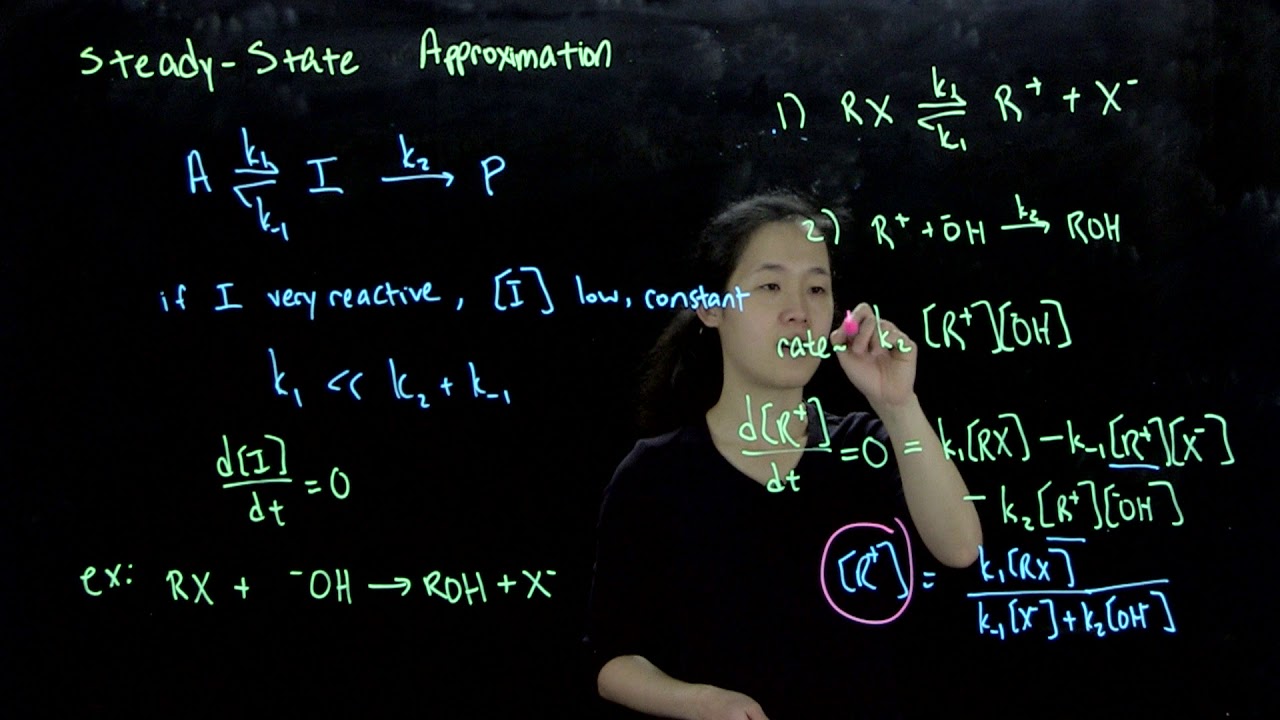 Steady-State Approximation
A ⇌ I → P
k₁
k₂
k₋₁
if I very reactive, [I] low, constant
k₁ << k₂ + k₋₁
d[I]/dt = 0
ex: RX + ⁻OH → ROH + X⁻
1) RX ⇌ R⁺ + X⁻
k₁
k₁
2) R⁺ + ⁻OH → ROH
k₂
rate = k₂ [R⁺][⁻OH]
d[R⁺]/dt = 0 = k₁[RX] − k₋₁[R⁺][X⁻]
− k₂[R⁺][⁻OH]
[R⁺] = k₁[RX] / k₋₁[X⁻] + k₂[OH⁻]